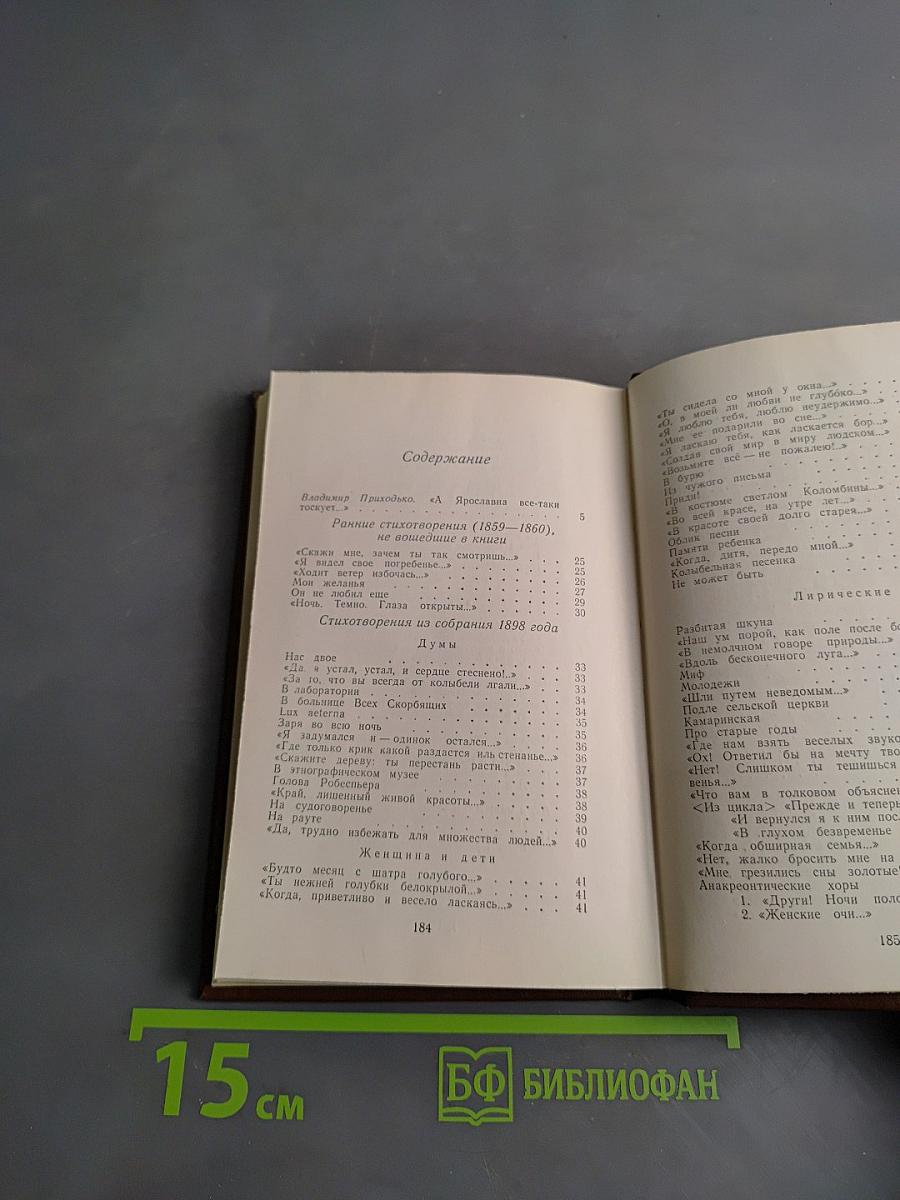 Содержание
Владимир Приходько. «А Ярославна все-таки
тоскует...» . . . . . . . . . . . . . . 5
Ранние стихотворения (1859—1860),
не вошедшие в книги
«Скажи мне, зачем ты так смотришь...» . . . 25
«Я видел свое погребенье...» . . . . . . . 25
«Ходит ветер избочась...» . . . . . . . . 26
Мои желанья . . . . . . . . . . . . 27
Он не любил еще . . . . . . . . . . . 29
«Ночь. Темно. Глаза открыты...» . . . . . . 30
Стихотворения из собрания 1898 года
Думы
Нас двое . . . . . . . . . . . . . 33
«Да, я устал, устал, и сердце стеснено!..» . . . 33
«За то, что вы всегда от колыбели лгали...» . . 33
В лаборатории . . . . . . . . . . . . 34
В больнице Всех Скорбящих . . . . . . . 34
Lux aeterna . . . . . . . . . . . . . 35
Заря во всю ночь . . . . . . . . . . . 35
«Я задумался и — одинок остался...» . . . . 36
«Где только крик какой раздастся иль стенанье...» 36
«Скажите дереву: ты перестань расти...» . . . 37
В этнографическом музее . . . . . . . . 37
Голова Робеспьера . . . . . . . . . . 38
«Край, лишенный живой красоты...» . . . . . 38
На судоговоренье . . . . . . . . . . . 39
На рауте . . . . . . . . . . . . . 40
«Да, трудно избежать для множества людей...» 40
Женщина и дети
«Будто месяц с шатра голубого...» . . . . . 41
«Ты нежней голубки белокрылой...» . . . . . 41
«Когда, приветливо и весело ласкаясь...» . . . 41
184
«Ты сидела со мной у окна...» . . . .
«О, в моей ли любви не глубоко...» . .
«Я люблю тебя, люблю неудержимо...» .
«Мне ее подарили во сне...» . . . .
«Я ласкаю тебя, как ласкается бор...» . .
«Создав свой мир в миру людском...» . .
«Возьмите всё — не пожалею!..» . . .
В бурю . . . . . . . .
Из чужого письма . . . . . .
Приди! . . . . . . . .
«В костюме светлом Коломбины...» . .
«Во всей красе, на утре лет...» . . .
«В красоте своей долго старея...» . . .
Облик песни . . . . . . .
Памяти ребенка . . . . . .
«Когда, дитя, передо мной...» . . .
Колыбельная песенка . . . . .
Не может быть . . . . . .
Лирические
Разбитая шкуна . . . . . .
«Наш ум порой, как поле после бо
«В немолчном говоре природы...»
«Вдоль бесконечного луга...» . . .
Миф . . . . . . . .
Молодежи . . . . . . .
«Шли путем неведомым...» . . .
Подле сельской церкви . . . .
Камаринская . . . . . .
Про старые годы . . . . .
«Где нам взять веселых звуко
«Ох! Ответил бы на мечту тво
«Нет! Слишком ты тешишься
венья...» . . . . . . .
«Что вам в толковом объяснен
<Из цикла> «Прежде и теперь
«И вернулся я к ним посл
«В глухом безвременье
«Когда обширная семья...»
«Нет, жалко бросить мне на
«Мне грезились сны золотые!
Анакреонтические хоры
1. «Други! Ночи поло
2. «Женские очи...»
185
15 см
БФ БИБЛИОФАН